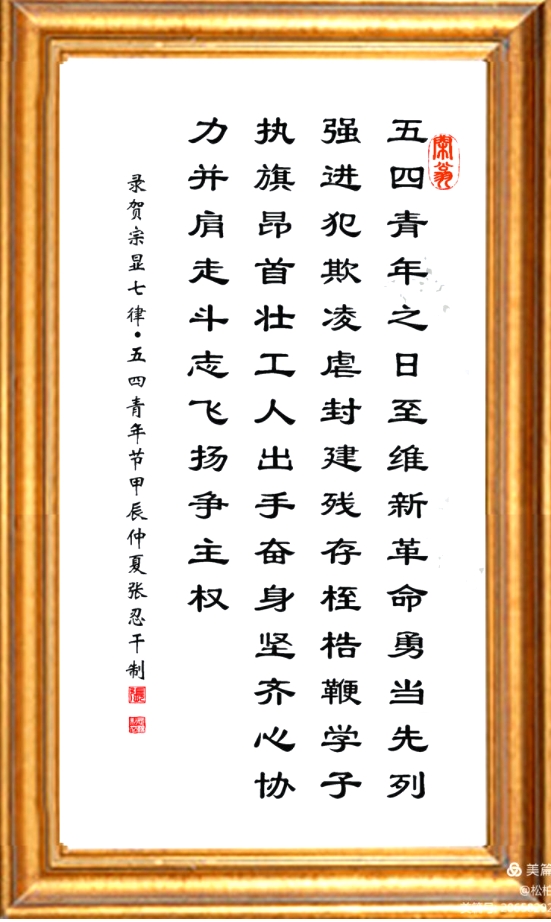 五四青年之日至维新革命勇当先列
强进犯欺凌虐封建残存桎梏鞭学子
执旗昂首壮工人出手奋身坚齐心协
力并肩走斗志飞扬争主权
录贺宗显七律•五四青年节甲辰仲夏张忍干制
美篇
@松柏